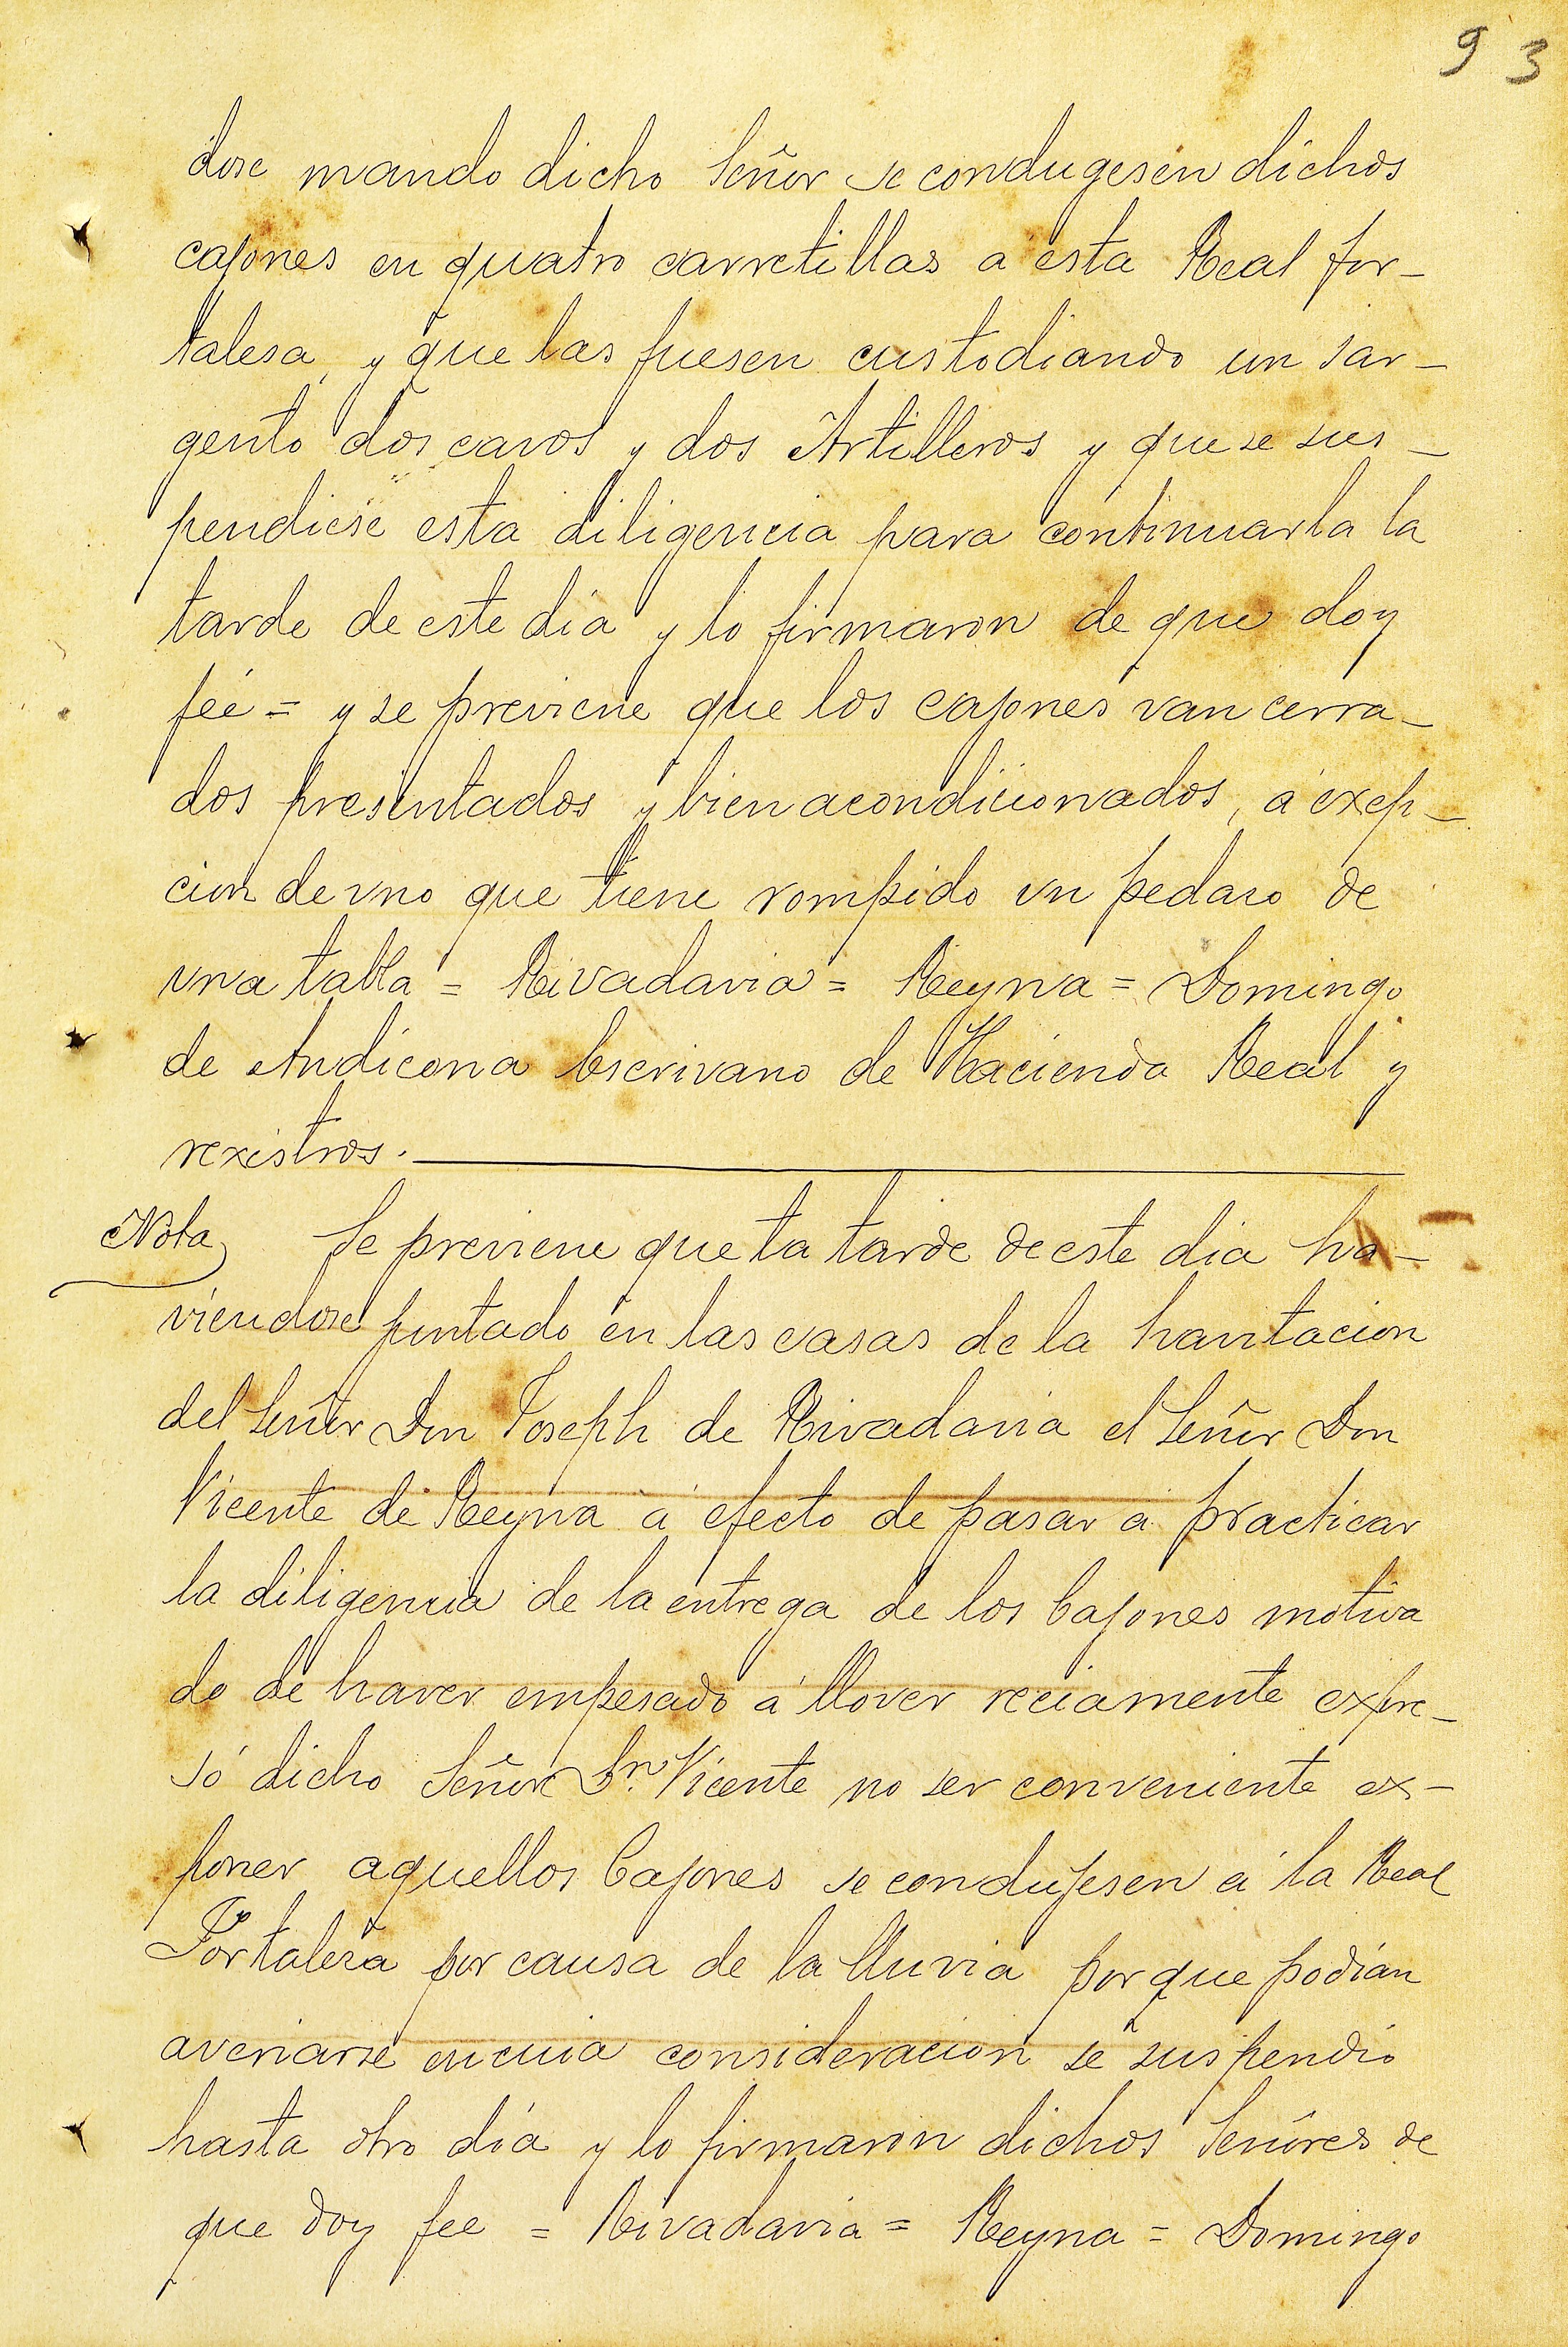 93
dose mando dicho Señor se condugesen dichos
cajones en quatro carretillas a esta Real for-
talesa, y que las fuesen custodiando un sar-
gento dos cavos y dos Artilleros y que se sus-
pendiese esta diligencia para continuarla la
tarde de este dia y lo firmaron de que doy
feé = y se previene que los cajones van cerra-
dos presintados y bien acondicionados, á exep-
cion de vno que tiene rompido vn pedaso de
vna tabla = Rivadavia = Reyna = Domingo
de Andicona Escrivano de Hacienda Real y
rexistros.
Nota Se previene que la tarde de este dia ha-
viendose juntado en las casas de la havitacion
del Señor Don Joseph de Rivadavia el Señor Don
Vicente de Reyna á efecto de pasar a practicar
la diligencia de la entrega de los Cajones motiva
do de haver empesado á llover reciamente expre-
só dicho Señor Dn. Vicente no ser conveniente ex-
poner aquellos Cajones se condujesen á la Real
Fortaleza por causa de la lluvia porque podian
averiarse en cuia consideracion se suspendio
hasta otro día y lo firmaron dichos Señores de
que doy fee = Rivadavia = Reyna = Domingo